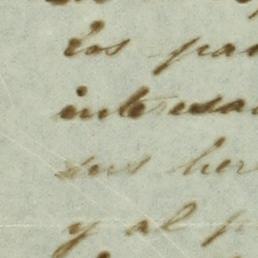 los pa
interesa
sus her
y al p